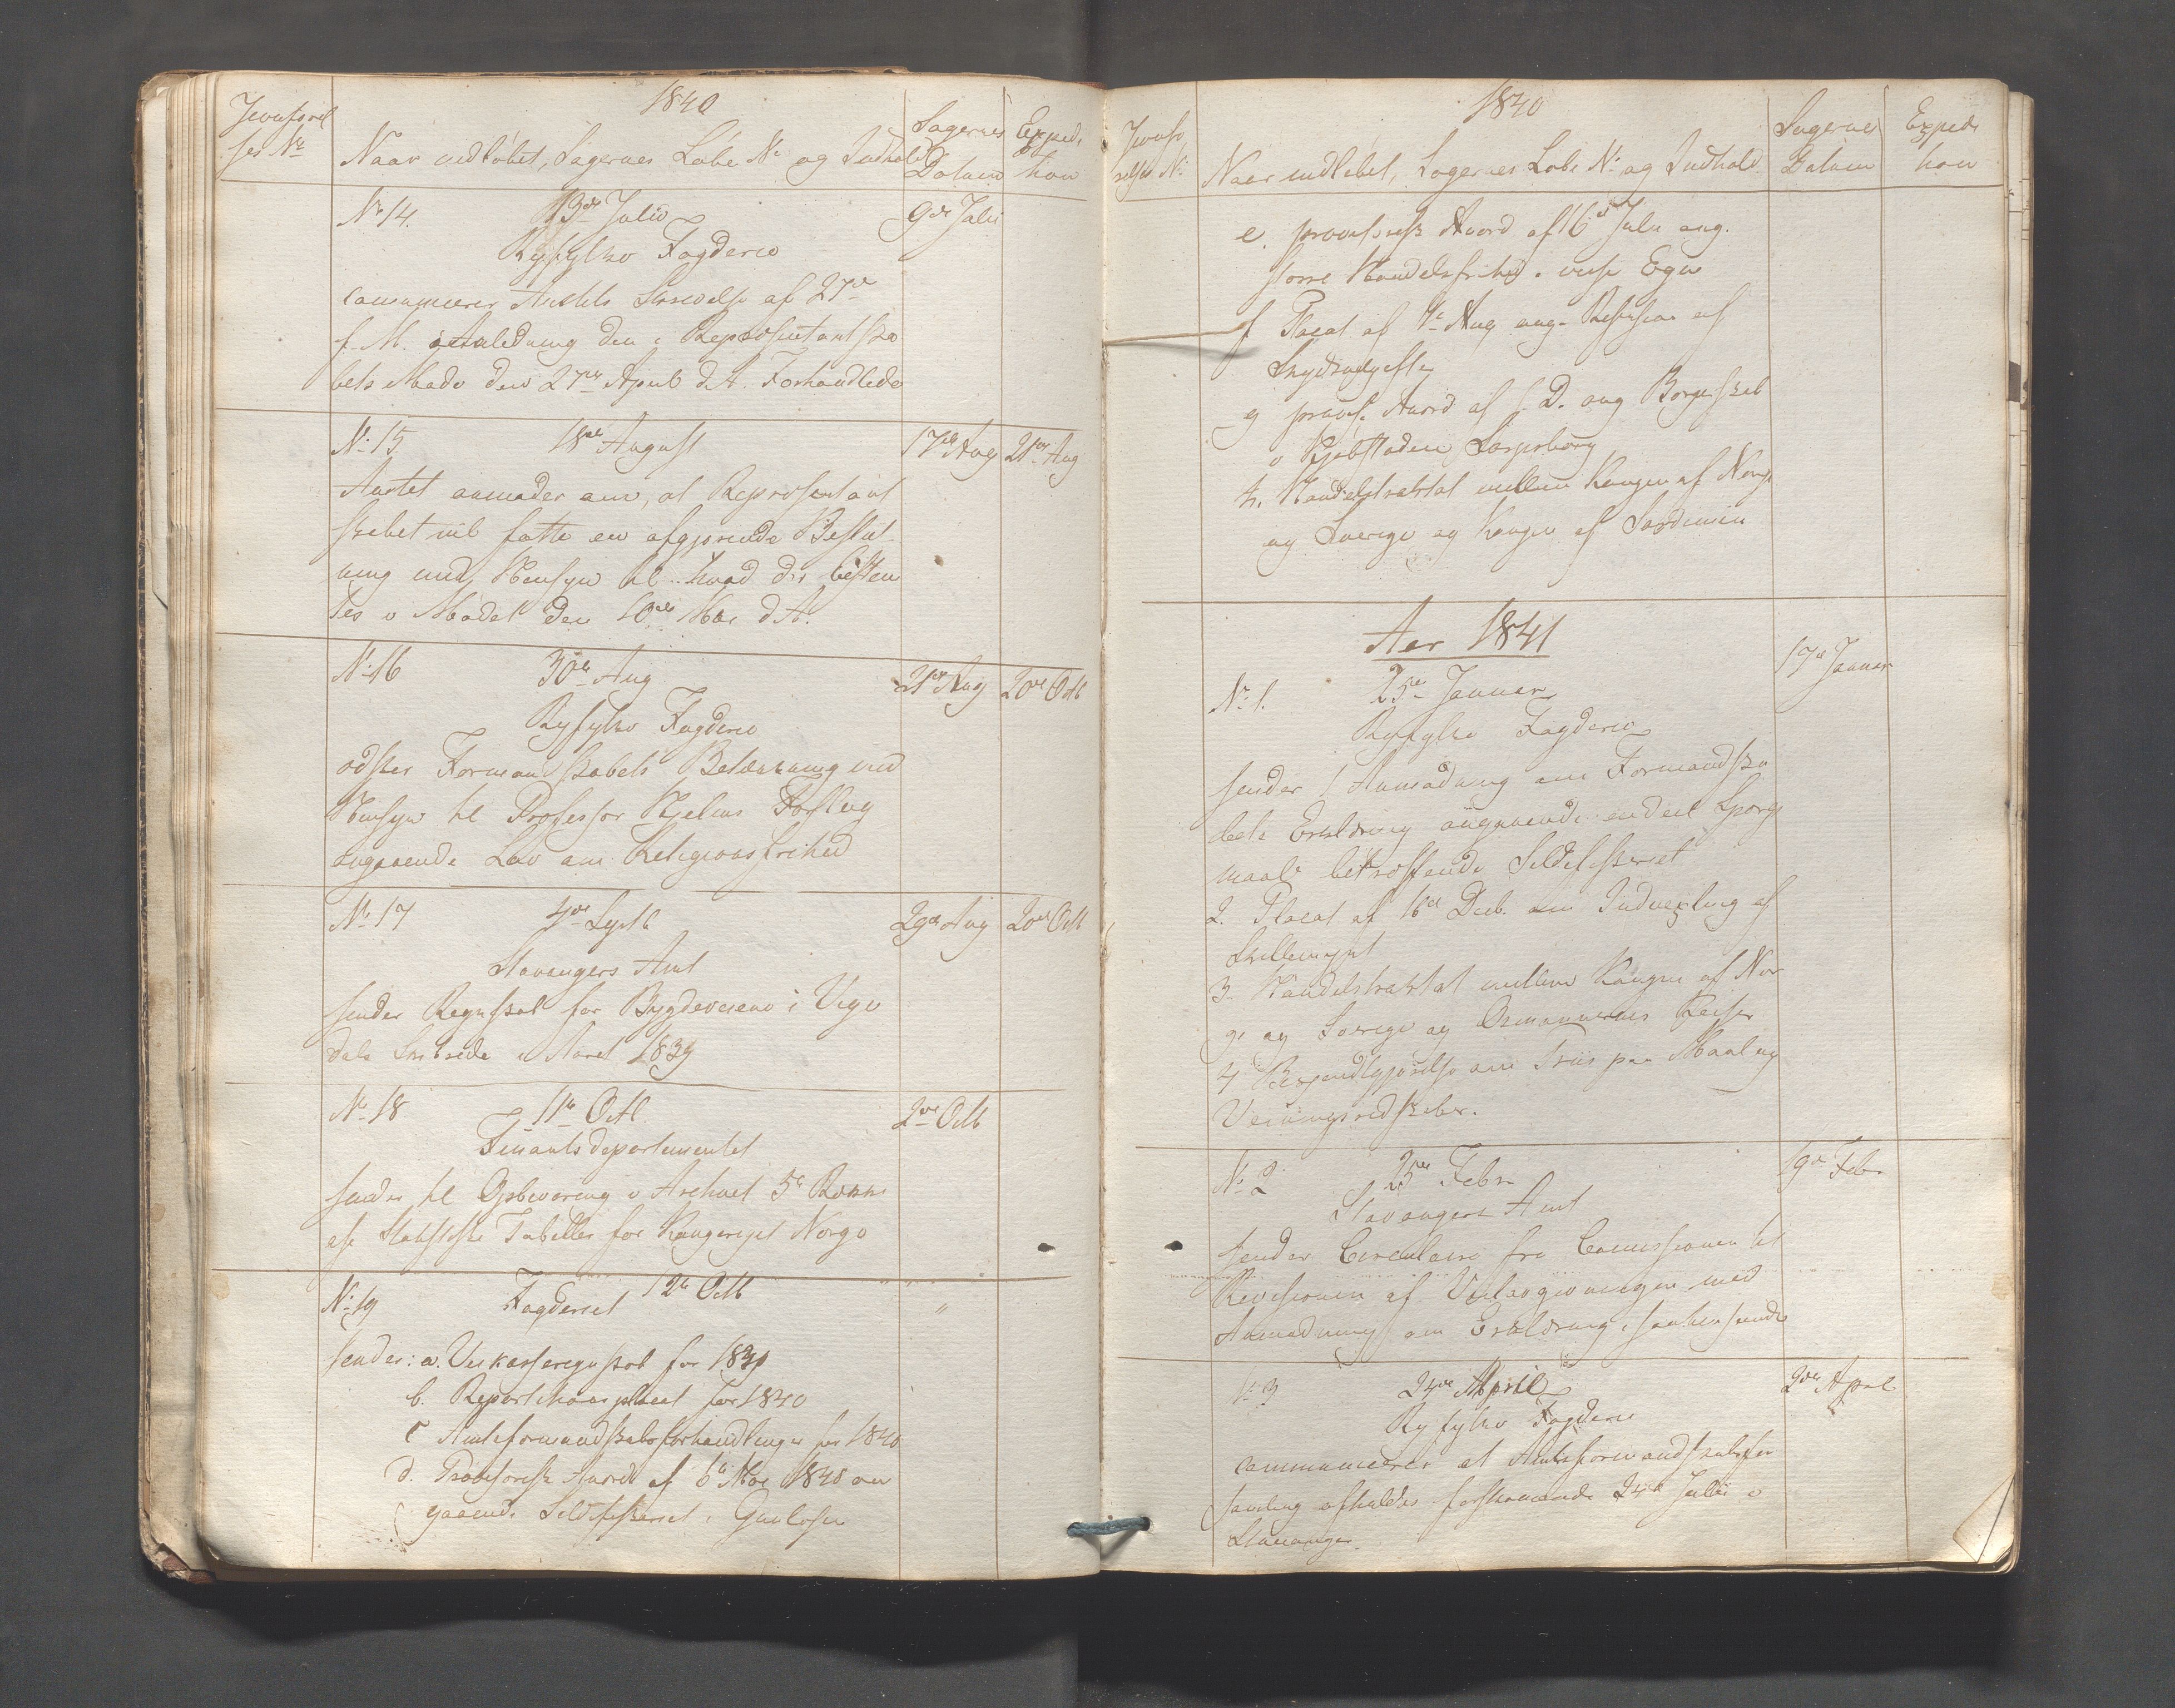 1840
Jevnførel
ses Nr
Naar indløbet, Sagernes Løbe Nr og Indhold
Sagernes
Datum
Exped.
tion
No 14. 13de Julio 9de Juli
Ryfylke Fogderie
communicerer Amtets Skrivelse af 27de
f. M. i Anledning den i Repræsentantska
bets Møde den 27de April d. A. Forhandlede
No 15 18de August 17de Aug 21de Aug
Amtet anmoder om, at Repræsentant
skabet vil fatte en afgjørende Beslut
ning med Hensyn til hvad der bestem
tes i Mødet den 10de Mai d. A.
No 16 30de Aug 21de Aug 20de Octb
Ryfylke Fogderie
æsker Formandskabets Betænkning med
Hensyn til Professor Hjelms Forslag
angaaende Lov om Religionsfrihed
No 17 4de Septb 29de Aug 20de Octb
Stavangers Amt
sender Regnskab for Bygdeveiene i Vige
dals Skibrede i Aaret 1839
No 18 11te Octb. 2de Octb
Finantsdepartementet
sender til Opbevaring i Archivet 3de Række
af Statistiske Tabeller for Kongeriget Norge
No 19 Fogderiet 12te Octb " "
sender: a. Veikasseregnskab for 1839
b. Repartitionsplacat for 1840
c Amtsformandskabsforhandlinger for 1840
d. Provisorisk Anord. af 6te Mai 1840 an
gaaende Sildfiskeriet i
1840
Jevnfø
relses No
Naar indløbet, Sagernes Løbe No og Indhold
Sagernes
Datum
Expedi
tion
e. provisorisk Anord af 16de Juli ang.
større Handelsfrihed i visse Egne
f Placat af 1te Aug ang.
Skydsudgifter
g provis. Anord af s. D. ang Borgerskab
i Kjøbstaden Sarpsborg
h. Handelstraktat mellem Kongen af Norge
og Sverige og Kongen af Sardinien
Aar 1841
No 1. 23de Januar 17de Januar
Ryfylke Fogderie
sender 1 Anmodning om Formandska
bets Erklæring angaaende endeel Spørgs
maal betræffende Sildefiskeriet
2. Placat af 16de Decb. om Indvexling af
Skillemynt
3. Handelstraktat mellem Kongen af Nor
ge og Sverige og Osmannernes Keiser
4 Bekjendtgjørelse om Priis paa Maal og
Veiningsredskaber.
No 2 25de Febr 19de Febr
Stavangers Amt
sender Circulaire fra Commissionen til
Revisionen af Veilovgivningen med
Anmodning om Erklæring i samme
No 3 24de April 2den April
Ryfylke Fogderie
communicerer at Amtsformandskabsfor
samling afholdes førstkommende 24de Juli i
Stavanger.